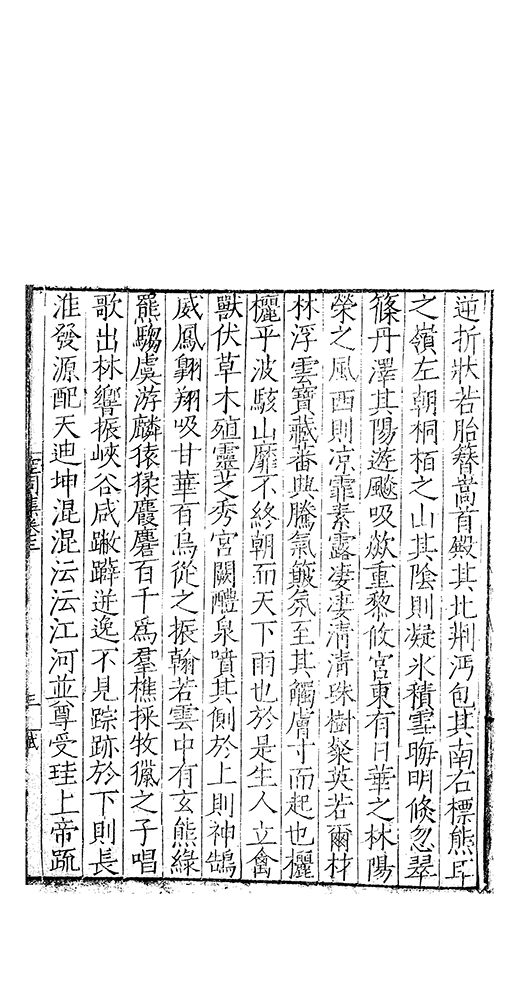 逆折狀若胎簪嵩首殿其北荆沔包其南右標熊耳
之嶺左朝桐栢之山其陰則凝氷積雪晦明倐忽翠
篠丹澤其陽遊飈吸欻重黎攸宮東有日華之林陽
榮之風西則凉霏素露凄凄清清珠樹粲英若爾材
林浮雲寶藏蕃興騰氣籋氛至其觸膚寸而起也欐
欐乎波駭山靡不終朝而天下雨也於是生人立禽
獸伏草木殖靈芝秀宮闕醴泉噴其側於上則神鵠
威鳳翺翔吸甘華百鳥從之振翰若雲中有玄熊綠
羆騶虞游麟猿猱麚麏百千爲羣樵採牧獵之子唱
歌出林響振峽谷咸蹴躃迸逸不見踪跡於下則長
淮發源配天迪坤混混沄沄江河並尊受珪上帝䟽
空同集卷三
三
賦